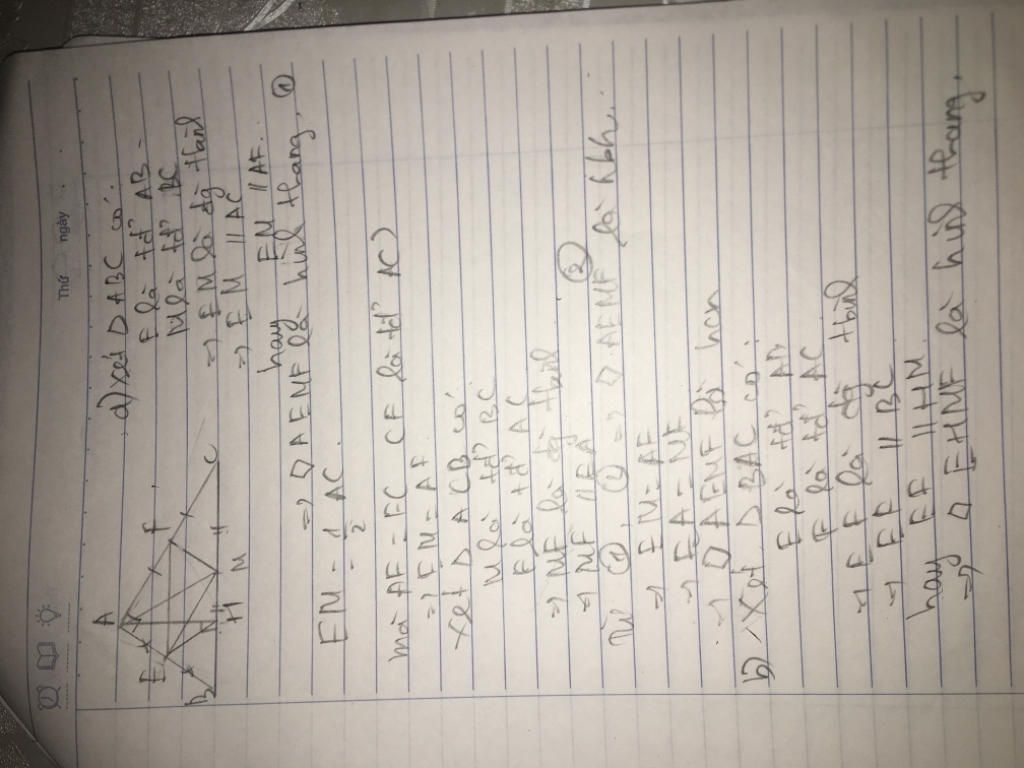 Thứ ngày
A
E
F
B
H
M
C
a) xét Δ ABC có:
E là tđ' AB
M là tđ' BC
=> EM là đg tbình
=> EM // AC
hay EM // AF.
=> ◇ AEMF là hình thang. ①
EM = 1/2 AC.
mà AF = FC ( F là tđ' AC)
=> EM = AF
xét Δ ACB có
M là tđ' BC
F là tđ' AC
=> MF là đg tbình
=> MF // EA ②
Từ ①, ② => ◇ AEMF là hbh.
=> EM = AF
=> EA = MF
=> ◇ AEMF là hcn
b) Xét Δ BAC có:
E là tđ' AB
F là tđ' AC
=> EF là đg tbình
=> EF // BC
hay EF // HM
=> ◇ EHMF là hình thang.